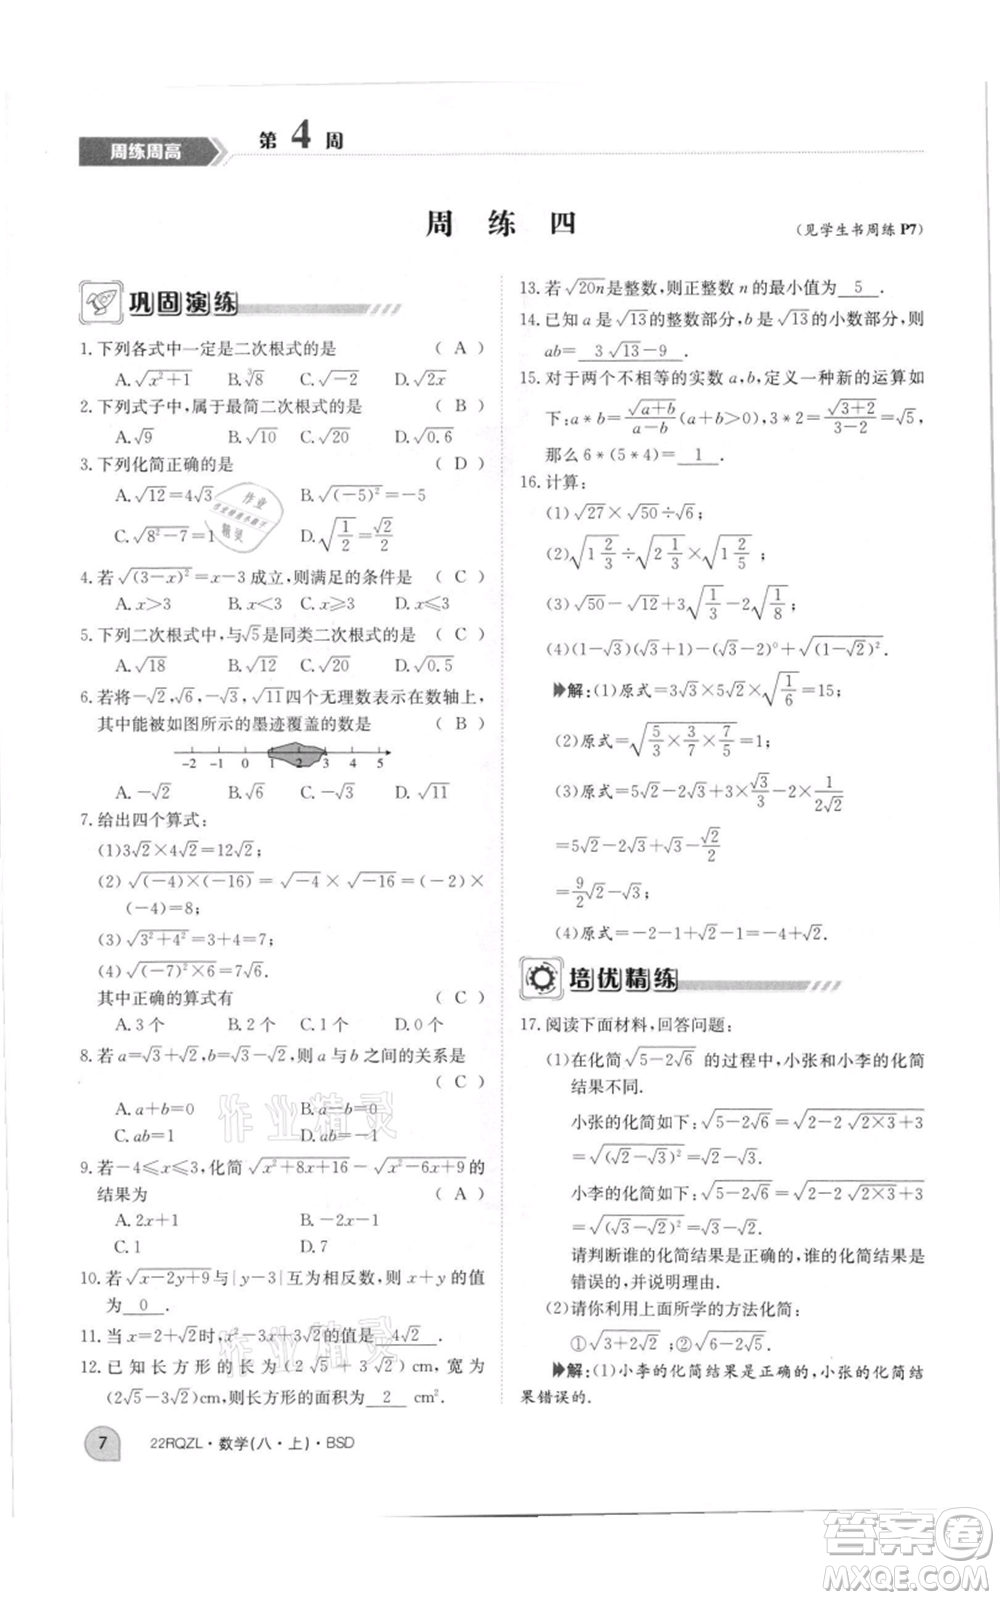 周练周高
第4周
周 练 四
(见学生书周练P7)
巩固演练
1. 下列各式中一定是二次根式的是 ( A )
A. √(x²+1) B. ∛8 C. √(-2) D. √(2x)
2. 下列式子中,属于最简二次根式的是 ( B )
A. √9 B. √10 C. √20 D. √0.6
3. 下列化简正确的是 ( D )
A. √12=4√3 B. √((-5)²)=-5
C. √(8²-7)=1 D. √(1/2)=√2/2
4. 若√((3-x)²)=x-3成立,则满足的条件是 ( C )
A. x>3 B. x<3 C. x≥3 D. x≤3
5. 下列二次根式中,与√5是同类二次根式的是 ( C )
A. √18 B. √10 C. √20 D. √0.5
6. 若将-√2,√6,-√3,√11四个无理数表示在数轴上,
其中能被如图所示的墨迹覆盖的数是 ( B )
-2 -1 0 1 2 3 4 5
A. -√2 B. √6 C. -√3 D. √11
7. 给出四个算式:
(1)3√2×4√2=12√2;
(2)√((-4)×(-16))=√(-4)×√(-16)=(-2)×
(-4)=8;
(3)√(3²+4²)=3+4=7;
(4)√(7²×6)=7√6.
其中正确的算式有 ( C )
A. 3个 B. 2个 C. 1个 D. 0个
8. 若a=√3+√2,b=√3-√2,则a与b之间的关系是
( C )
A. a+b=0 B. a-b=0
C. ab=1 D. a²=b²
9. 若-4≤x≤3,化简√(x²+8x+16)-√(x²-6x+9)的
结果为 ( A )
A. 2x+1 B. -2x-1
C. 1 D. 7
10. 若√(x-2y+9)与|y-3|互为相反数,则x+y的值
为 0 .
11. 当x=2+√2时,x²-3x+√2的值是 4√2 .
12. 已知长方形的长为(2√5+3√2)cm,宽为
(2√5-3√2)cm,则长方形的面积为 2 cm².
7
22RQZL·数学(八·上)·BSD
13. 若√(20n)是整数,则正整数n的最小值为 5 .
14. 已知a是√13的整数部分,b是√13的小数部分,则
ab= 3√13-9 .
15. 对于两个不相等的实数a,b,定义一种新的运算如
下:a*b=√(a+b)/(a-b)(a+b>0),3*2=√(3+2)/(3-2)=√5,
那么6*(5*4)= 1 .
16. 计算:
(1)√27×√50÷√6;
(2)√(1 2/3)÷√(2 1/3)×√(1 2/5);
(3)√50-√12+3√(1/3)-2√(1/8);
(4)(1-√3)(1+√3)-(√3-2)°+√((1-√2)²).
解:(1)原式=3√3×5√2×√(1/6)=15;
(2)原式=√(5/3×3/7×7/5)=1;
(3)原式=5√2-2√3+3×√3/3-2×1/(2√2)
=5√2-2√3+√3-√2/2
=9/2√2-√3;
(4)原式=-2-1+√2-1=-4+√2.
培优精练
17. 阅读下面材料,回答问题:
(1)在化简√(5-2√6)的过程中,小张和小李的化简
结果不同.
小张的化简如下:√(5-2√6)=√(2-2√(2×3)+3)
=√((√2-√3)²)=√2-√3.
小李的化简如下:√(5-2√6)=√(2-2√(2×3)+3)
=√((√3-√2)²)=√3-√2.
请判断谁的化简结果是正确的,谁的化简结果是
错误的,并说明理由.
(2)请你利用上面所学的方法化简:
①√(3+2√2);②√(6-2√5).
解:(1)小李的化简结果是正确的,小张的化简结
果错误的.
作业精灵
答案圈